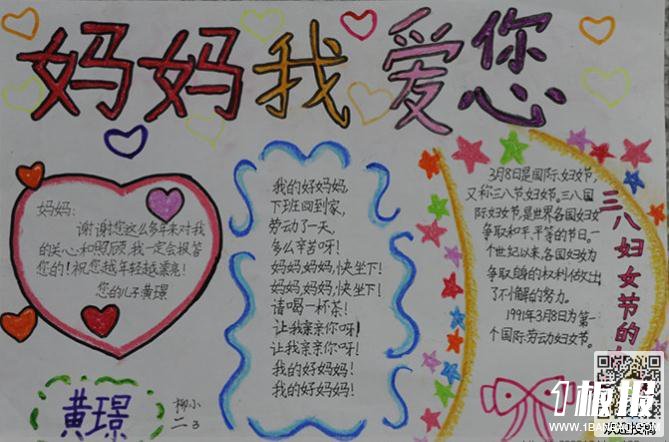 妈妈我爱您
妈妈:
谢谢您这么多年来对我
的关心和照顾,我一定会报答
您的!祝您越年轻越漂亮!
您的儿子黄璟
黄璟
柳小
二3
我的好妈妈,
下班回到家,
劳动了一天,
多么辛苦呀!
妈妈,妈妈,快坐下!
妈妈,妈妈,快坐下!
请喝一杯茶!
让我亲亲你呀!
让我亲亲你呀!
我的好妈妈!
我的好妈妈!
3月8日是国际妇女节,
又称三八节,妇女节。三八国
际妇女节,是世界各国妇女
争取和平、平等的节日。一
个世纪以来,各国妇女为
争取的权利做出
了不懈的努力。
1991年3月8日为第一
个国际劳动妇女节。
三八妇女节的
1板报
WWW.1BANBAO.COM
欢迎投稿